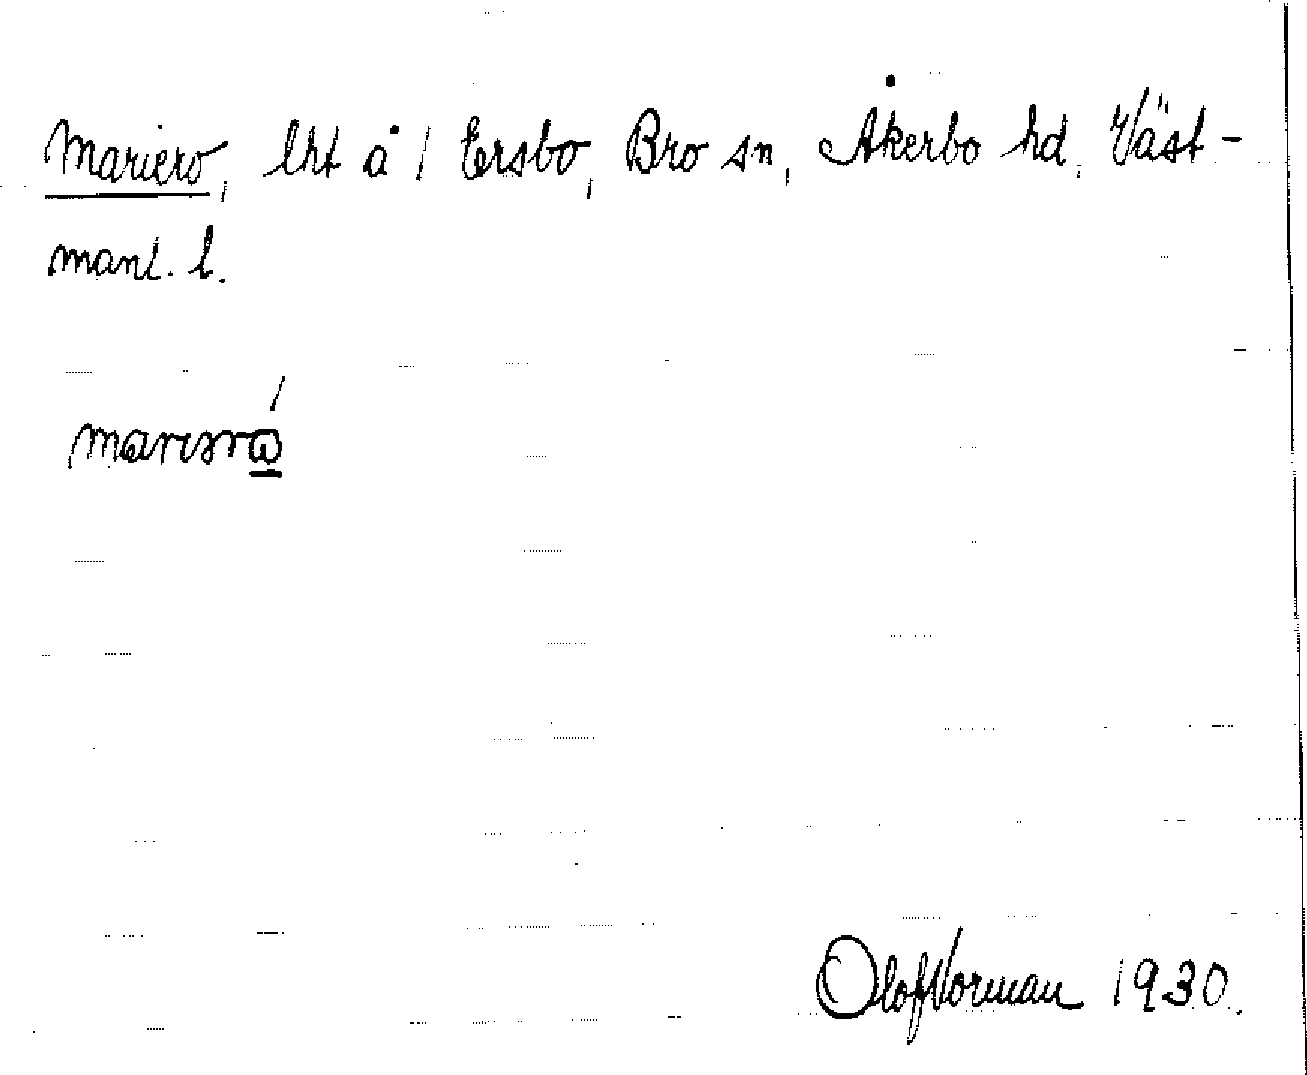 Mariero, lht å 1 Ersbo, Bro sn, Åkerbo hd, Väst-
manl. l.
Olof Norman 1930.